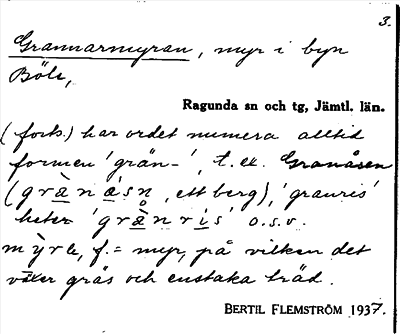 3.
Grannarmyran, myr i byn
Böle,
Ragunda sn och tg, Jämtl. län.
(forts.) har ordet numera alltid
formen 'grän-', t.ex. Granåsen
(grànásn̥, ett berg), 'granris'
heter 'grànris' o.s.v.
mỳrɐ, f. = myr, på vilken det
växer gräs och enstaka träd.
BERTIL FLEMSTRÖM 1937.